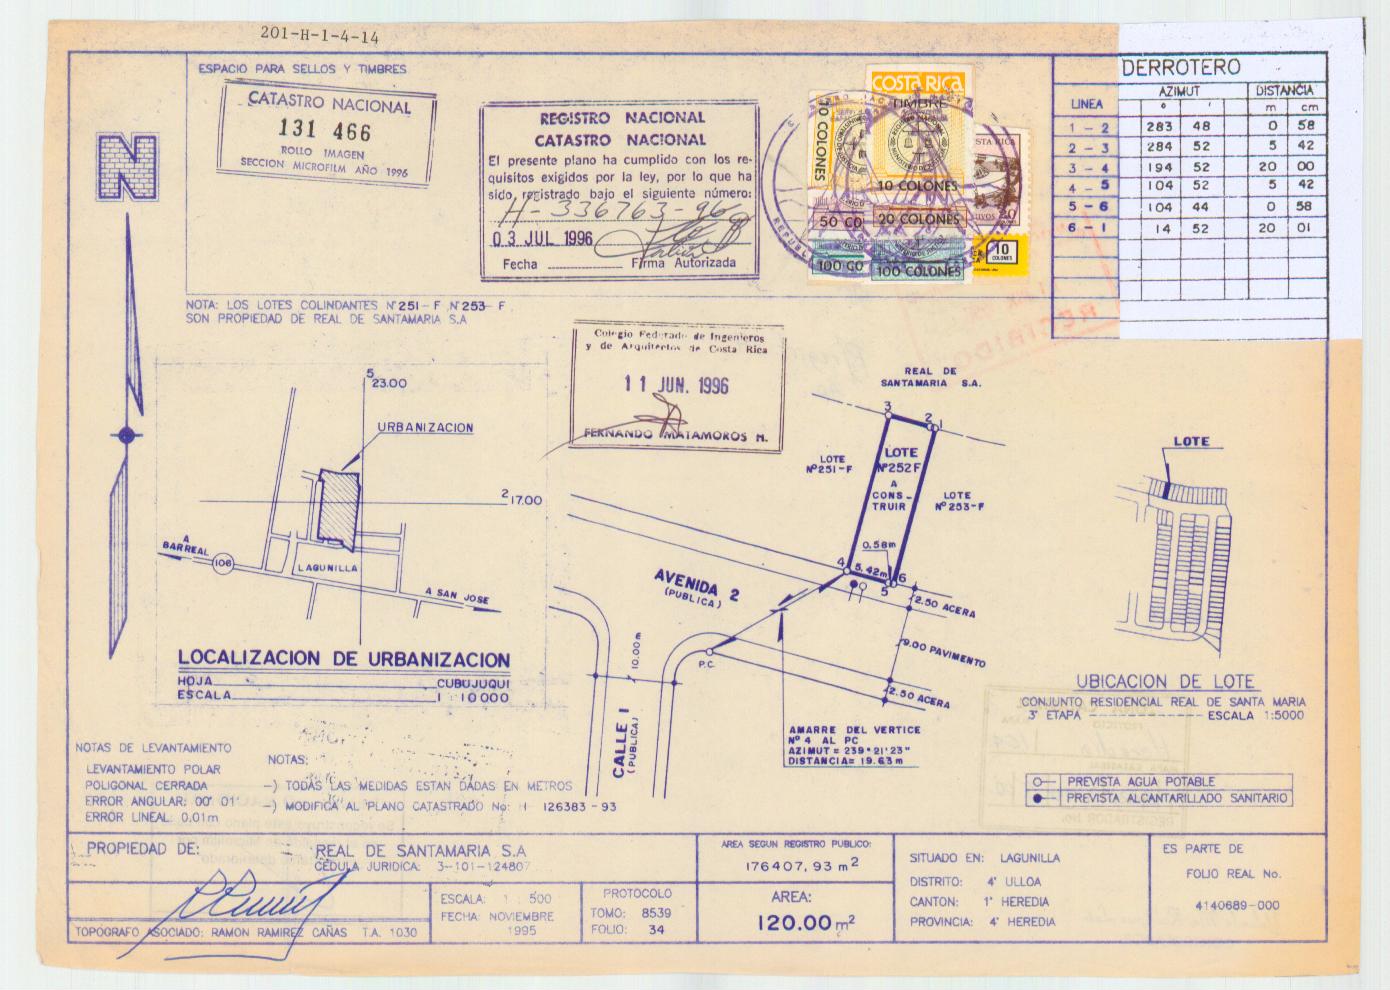 201-H-1-4-14
ESPACIO PARA SELLOS Y TIMBRES
CATASTRO NACIONAL
131 466
ROLLO IMAGEN
SECCION MICROFILM AÑO 1996
REGISTRO NACIONAL
CATASTRO NACIONAL
El presente plano ha cumplido con los re-
quisitos exigidos por la ley, por lo que ha
sido, registrado bajo el siguiente número:
H-336763-96
03 JUL 1996
Fecha Firma Autorizada
COSTA RICA
TIMBRE
10 COLONES
10 COLONES
50 CO
20 COLONES
100 CO
100 COLONES
10
COLONES
DERROTERO
LINEA AZIMUT DISTANCIA
° ' m cm
1 - 2 283 48 0 58
2 - 3 284 52 5 42
3 - 4 194 52 20 00
4 - 5 104 52 5 42
5 - 6 104 44 0 58
6 - 1 14 52 20 01
RECIBIDO
N
NOTA: LOS LOTES COLINDANTES Nº251-F Nº253-F
SON PROPIEDAD DE REAL DE SANTAMARIA S.A
Colegio Federado de Ingenieros
y de Arquitectos de Costa Rica
11 JUN. 1996
FERNANDO MATAMOROS M.
5 23.00
URBANIZACION
2 17.00
A BARREAL
106
LAGUNILLA
A SAN JOSE
LOCALIZACION DE URBANIZACION
HOJA CUBUJUQUI
ESCALA 1:10000
REAL DE
SANTAMARIA S.A.
3
2
1
LOTE
Nº251-F
LOTE
Nº252F
A
CONS-
TRUIR
LOTE
Nº253-F
0.58m
4
5.42m
6
5
2.50 ACERA
9.00 PAVIMENTO
2.50 ACERA
AVENIDA 2
(PUBLICA)
10.00m
P.C.
CALLE 1
(PUBLICA)
AMARRE DEL VERTICE
Nº 4 AL PC
AZIMUT = 239°21'23"
DISTANCIA= 19.63m
LOTE
UBICACION DE LOTE
CONJUNTO RESIDENCIAL REAL DE SANTA MARIA
3ª ETAPA ESCALA 1:5000
PREVISTA AGUA POTABLE
PREVISTA ALCANTARILLADO SANITARIO
NOTAS DE LEVANTAMIENTO
LEVANTAMIENTO POLAR
POLIGONAL CERRADA
ERROR ANGULAR: 00' 01"
ERROR LINEAL: 0.01m
NOTAS:
-) TODAS LAS MEDIDAS ESTAN DADAS EN METROS
-) MODIFICA AL PLANO CATASTRADO No: H 126383-93
PROPIEDAD DE:
REAL DE SANTAMARIA S.A
CEDULA JURIDICA: 3-101-124807
TOPOGRAFO ASOCIADO: RAMON RAMIREZ CAÑAS T.A. 1030
ESCALA: 1 : 500
FECHA: NOVIEMBRE
1995
PROTOCOLO
TOMO: 8539
FOLIO: 34
AREA SEGUN REGISTRO PUBLICO:
176407,93 m²
AREA:
120.00 m²
SITUADO EN: LAGUNILLA
DISTRITO: 4º ULLOA
CANTON: 1º HEREDIA
PROVINCIA: 4º HEREDIA
ES PARTE DE
FOLIO REAL No.
4140689-000